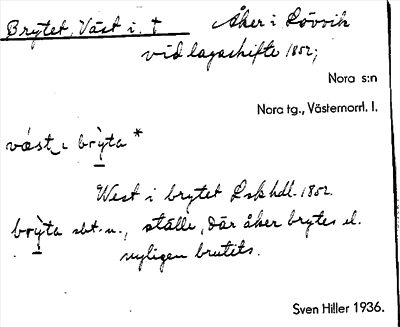 Brytet, Väst i. †
Åker i Lövvik
vid lagaskifte 1852;
Nora s:n
Nora tg., Västernorrl. l.
väst i brỳta *
West i brytet Lskhdl. 1852.
brỳta sbt. n., ställe, där åker brytes el.
nyligen brutets.
Sven Hiller 1936.